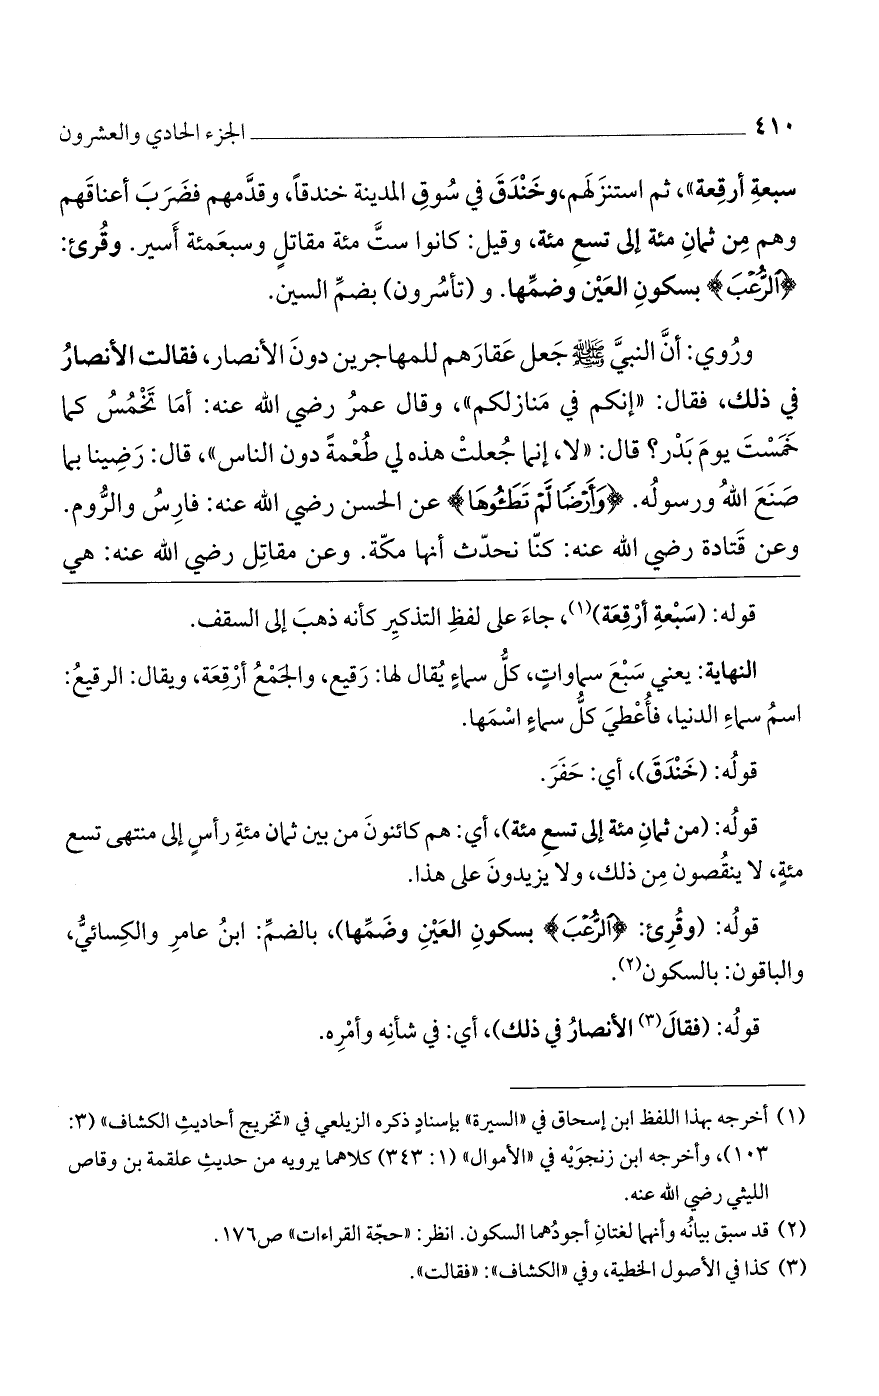 ٤١٠ الجزء الحادي والعشرون
سبعةِ أرقِعة»، ثم استنزَلَهم،وخَنْدَقَ في سُوقِ المدينة خندقاً، وقدَّمهم فضَرَبَ أعناقَهم
وهم مِن ثمانِ مئة إلى تسعِ مئة، وقيل: كانوا ستَّ مئة مقاتلٍ وسبعَمئة أَسير. وقُرئ:
﴿ٱلرُّعْبَ﴾ بسكونِ العَيْن وضمِّها. و (تأسُرون) بضمِّ السين.
ورُوي: أنَّ النبيَّ ﷺ جَعل عَقارَهم للمهاجرين دونَ الأنصار، فقالت الأنصارُ
في ذلك، فقال: «إنكم في مَنازلكم»، وقال عمرُ رضي الله عنه: أمَا تَخْمُسُ كما
خَمَسْتَ يومَ بَدْر؟ قال: «لا، إنما جُعلتْ هذه لي طُعْمةً دون الناس»، قال: رَضِينا بما
صَنَعَ اللهُ ورسولُه. ﴿وَأَرْضًا لَّمْ تَطَـُٔوهَا﴾ عن الحسن رضي الله عنه: فارِسُ والرُّوم.
وعن قَتادة رضي الله عنه: كنّا نحدّث أنها مكّة. وعن مقاتِل رضي الله عنه: هي
قوله: (سَبْعةِ أرْقِعَة)(١)، جاءَ على لفظِ التذكيرِ كأنه ذهبَ إلى السقف.
النهاية: يعني سَبْعَ سماواتٍ، كلُّ سماءٍ يُقال لها: رَقيع، والجَمْعُ أرْقِعَة، ويقال: الرقيعُ:
اسمُ سماءِ الدنيا، فأُعْطيَ كلُّ سماءٍ اسْمَها.
قولُه: (خَنْدَقَ)، أي: حَفَرَ.
قولُه: (من ثمانِ مئة إلى تسعِ مئة)، أي: هم كائنونَ من بين ثمان مئةِ رأسٍ إلى منتهى تسع
مئةٍ، لا ينقُصون مِن ذلك، ولا يزيدونَ على هذا.
قولُه: (وقُرِئ: ﴿ٱلرُّعْبَ﴾ بسكونِ العَيْنِ وضَمِّها)، بالضمِّ: ابنُ عامرِ والكِسائيُّ،
والباقون: بالسكون(٢).
قولُه: (فقالَ(٣) الأنصارُ في ذلك)، أي: في شأنِه وأمْرِه.
(١) أخرجه بهذا اللفظ ابن إسحاق في «السيرة» بإسنادٍ ذكره الزيلعي في «تخريج أحاديثِ الكشاف» (٣:
١٠٣)، وأخرجه ابن زنجوَيْه في «الأموال» (١: ٣٤٣) كلاهما يرويه من حديثِ علقمة بن وقاص
الليثي رضي الله عنه.
(٢) قد سبق بيانُه وأنهما لغتانِ أجودُهما السكون. انظر: «حجّة القراءات» ص١٧٦.
(٣) كذا في الأصول الخطية، وفي «الكشاف»: «فقالت».